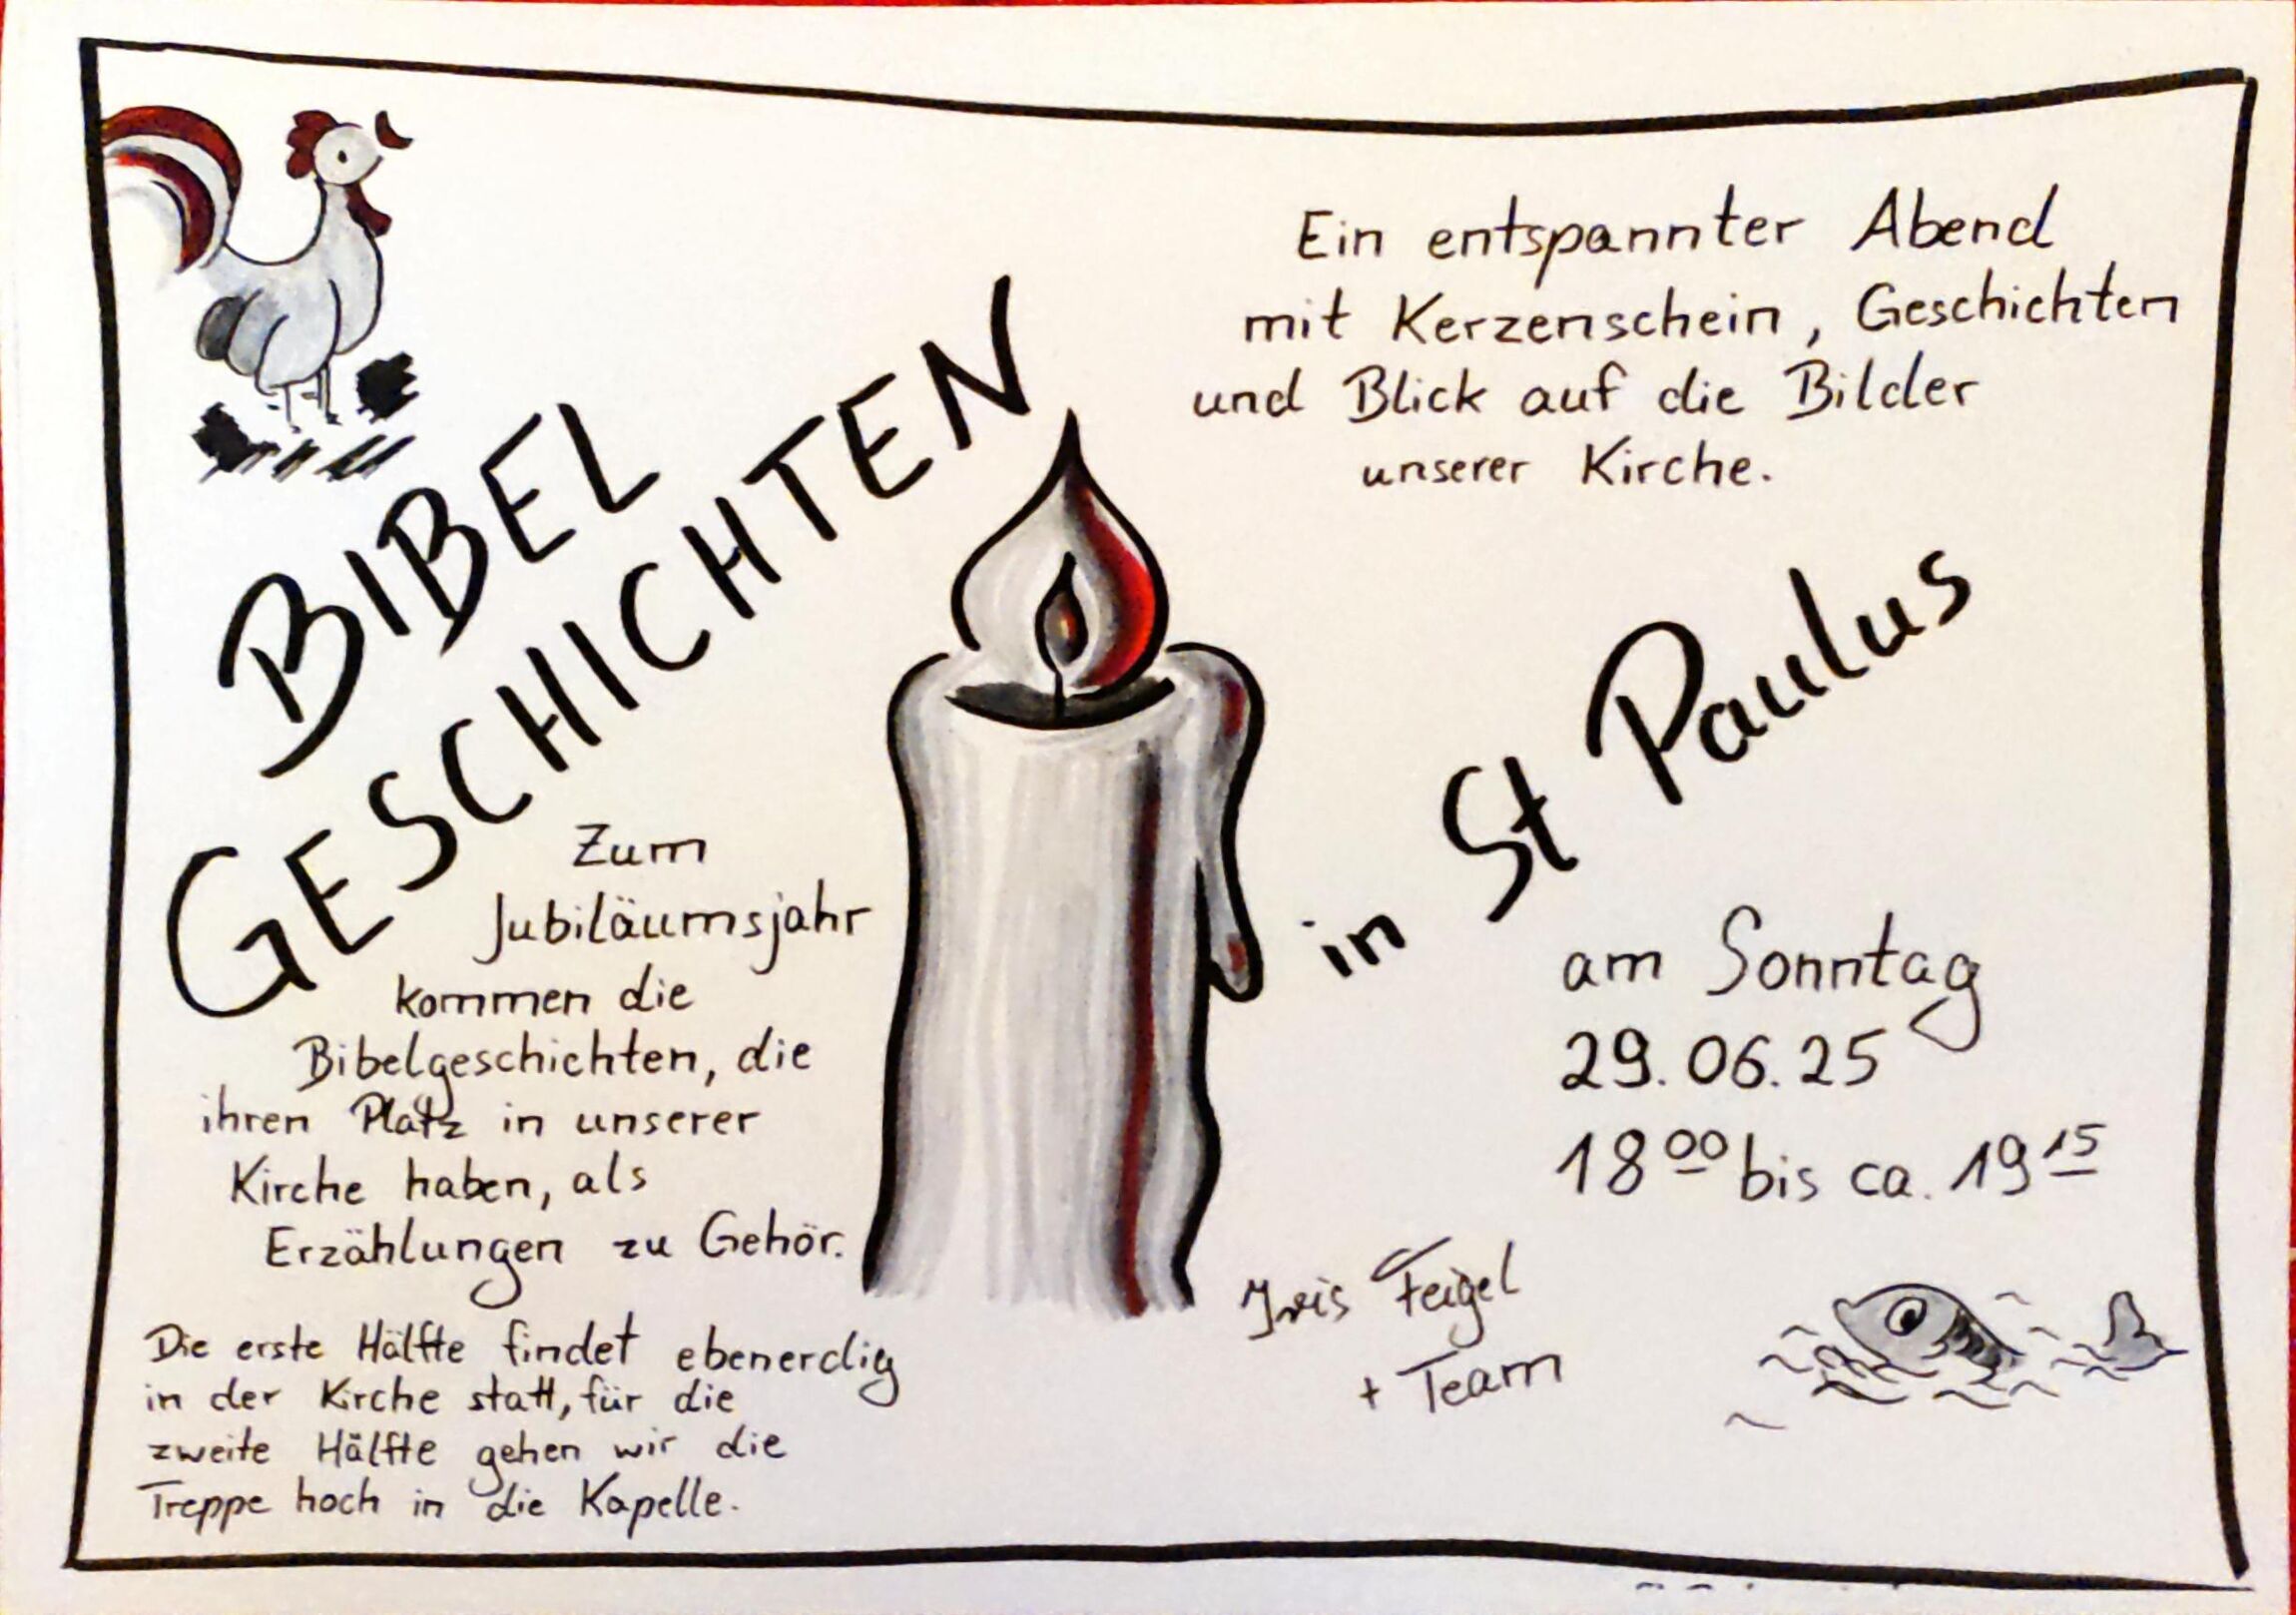 Ein entspannter Abend
mit Kerzenschein, Geschichten
und Blick auf die Bilder
unserer Kirche.
BIBEL
GESCHICHTEN
in St Paulus
Zum
Jubiläumsjahr
kommen die
Bibelgeschichten, die
ihren Platz in unserer
Kirche haben, als
Erzählungen zu Gehör.
am Sonntag
29.06.25
18 00 bis ca. 19 15
Iris Feigel
+ Team
Die erste Hälfte findet ebenerdig
in der Kirche statt, für die
zweite Hälfte gehen wir die
Treppe hoch in die Kapelle.